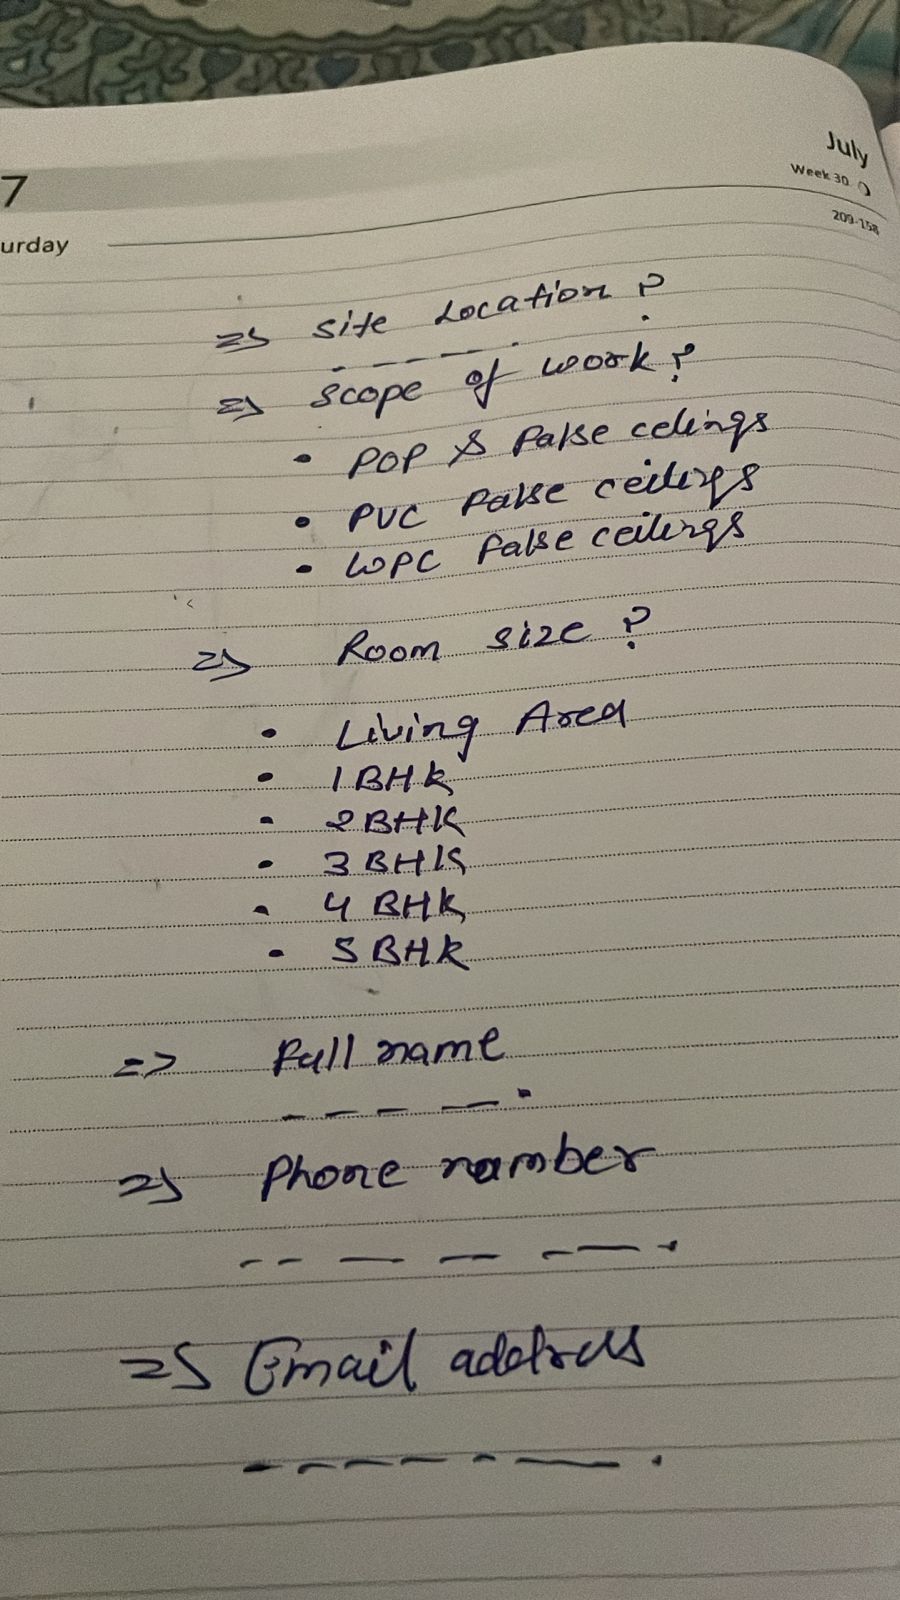 7
July
Week 30
209-158
urday
=> Site Location ?
=> Scope of work ?
• POP & False celings
• PVC False ceilings
• WPC false ceilings
=> Room size ?
• Living Area
• 1 BHK
• 2 BHK
• 3 BHK
• 4 BHK
• 5 BHK
=> Full name
=> Phone number
=> Email address